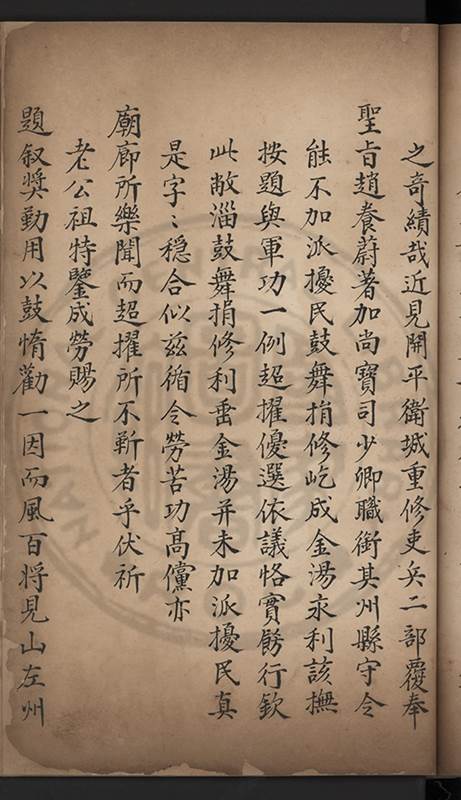 之奇績哉近見開平衛城重修吏兵二部覆奉
聖旨趙養蔚著加尚寶司少卿職銜其州縣守令
能不加派擾民鼓舞捐修屹成金湯永利該撫
按題與軍功一例超擢優選依議恪實餝行欽
此敝淄鼓舞捐修利垂金湯并未加派擾民真
是字〻穩合似兹循令勞苦功高儻亦
廟廊所樂聞而超擢所不靳者乎伏祈
老公祖特鑒成勞賜之
題叙奨動用以鼓惰勸一因而風百將見山左州